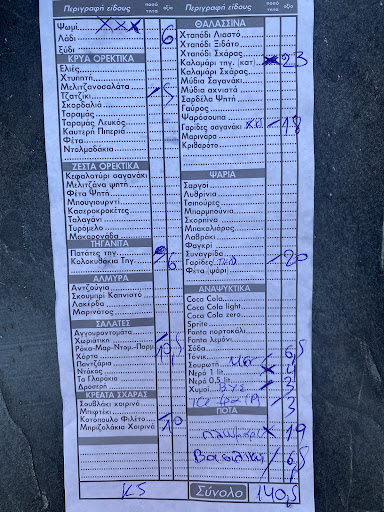 Περιγραφή είδους ποσό τητα αξία
Ψωμί xxx 6
Λάδι
Ξύδι
ΚΡΥΑ ΟΡΕΚΤΙΚΑ
Ελιές
Χτυπητή
Μελιτζανοσαλάτα
Τζατζίκι / 5
Σκορδαλιά
Ταραμάς
Ταραμάς Λευκός
Καυτερή Πιπεριά
Φέτα
Ντολμαδάκια
ΖΕΣΤΑ ΟΡΕΚΤΙΚΑ
Κεφαλοτύρι σαγανάκι
Μελιτζάνα ψητή
Φέτα Ψητή
Μπουγιουρντί
Κασεροκροκέτες
Ταλαγάνι
Τυρόμελο
Μακαρονάδα
ΤΗΓΑΝΙΤΑ
Πατάτες τηγ.
Κολοκυθάκια Τηγ. 6
ΑΛΜΥΡΑ
Αντζούγια
Σκουμπρί Καπνιστό
Λακέρδα
Μαρινάτος
ΣΑΛΑΤΕΣ
Αγγουροντομάτα
Χωριάτικη
Ρόκα-Μαρ-Ντομ-Παρμ.
Χόρτα
Παντζάρια
Ντάκος
Τα Γλαράκια
Δροσερή
ΚΡΕΑΤΑ ΣΧΑΡΑΣ
Σουβλάκι χοιρινό
Μπιφτέκι
Κοτόπουλο Φιλέτο / 10
Μπριζολάκια Χοιρινά
Περιγραφή είδους ποσό τητα αξία
ΘΑΛΑΣΣΙΝΑ
Χταπόδι Λιαστό
Χταπόδι Ξιδάτο
Χταπόδι Σχάρας
Καλαμάρι τηγ. (κατ) 23
Καλαμάρι Σχάρας
Μύδια Σαγανάκι
Μύδια αχνιστά
Σαρδέλα Ψητή
Γαύρος
Ψαρόσουπα
Γαρίδες σαγανάκι 18
Μαρινάρα
Κριθαρότο
ΨΑΡΙΑ
Σαργοί
Λυθρίνια
Τσιπούρες
Μπαρμπούνια
Σκορπίνα
Μπακαλιάρος
Λαβράκι
Φαγκρί
Συναγρίδα
Γαρίδες 20
Φέτα (ψάρι)
ΑΝΑΨΥΚΤΙΚΑ
Coca Cola
Coca Cola light
Coca Cola zero
Sprite
Fanta πορτοκάλι
Fanta λεμόνι
Σόδα
Τόνικ 6,5
Σουρωτή
Νερό 1 lit. 4
Νερό 0,5 lit.
Χυμοί 3
3
ΠΟΤΑ
19
Βασιλική 6,5
K5 Σύνολο 140,5